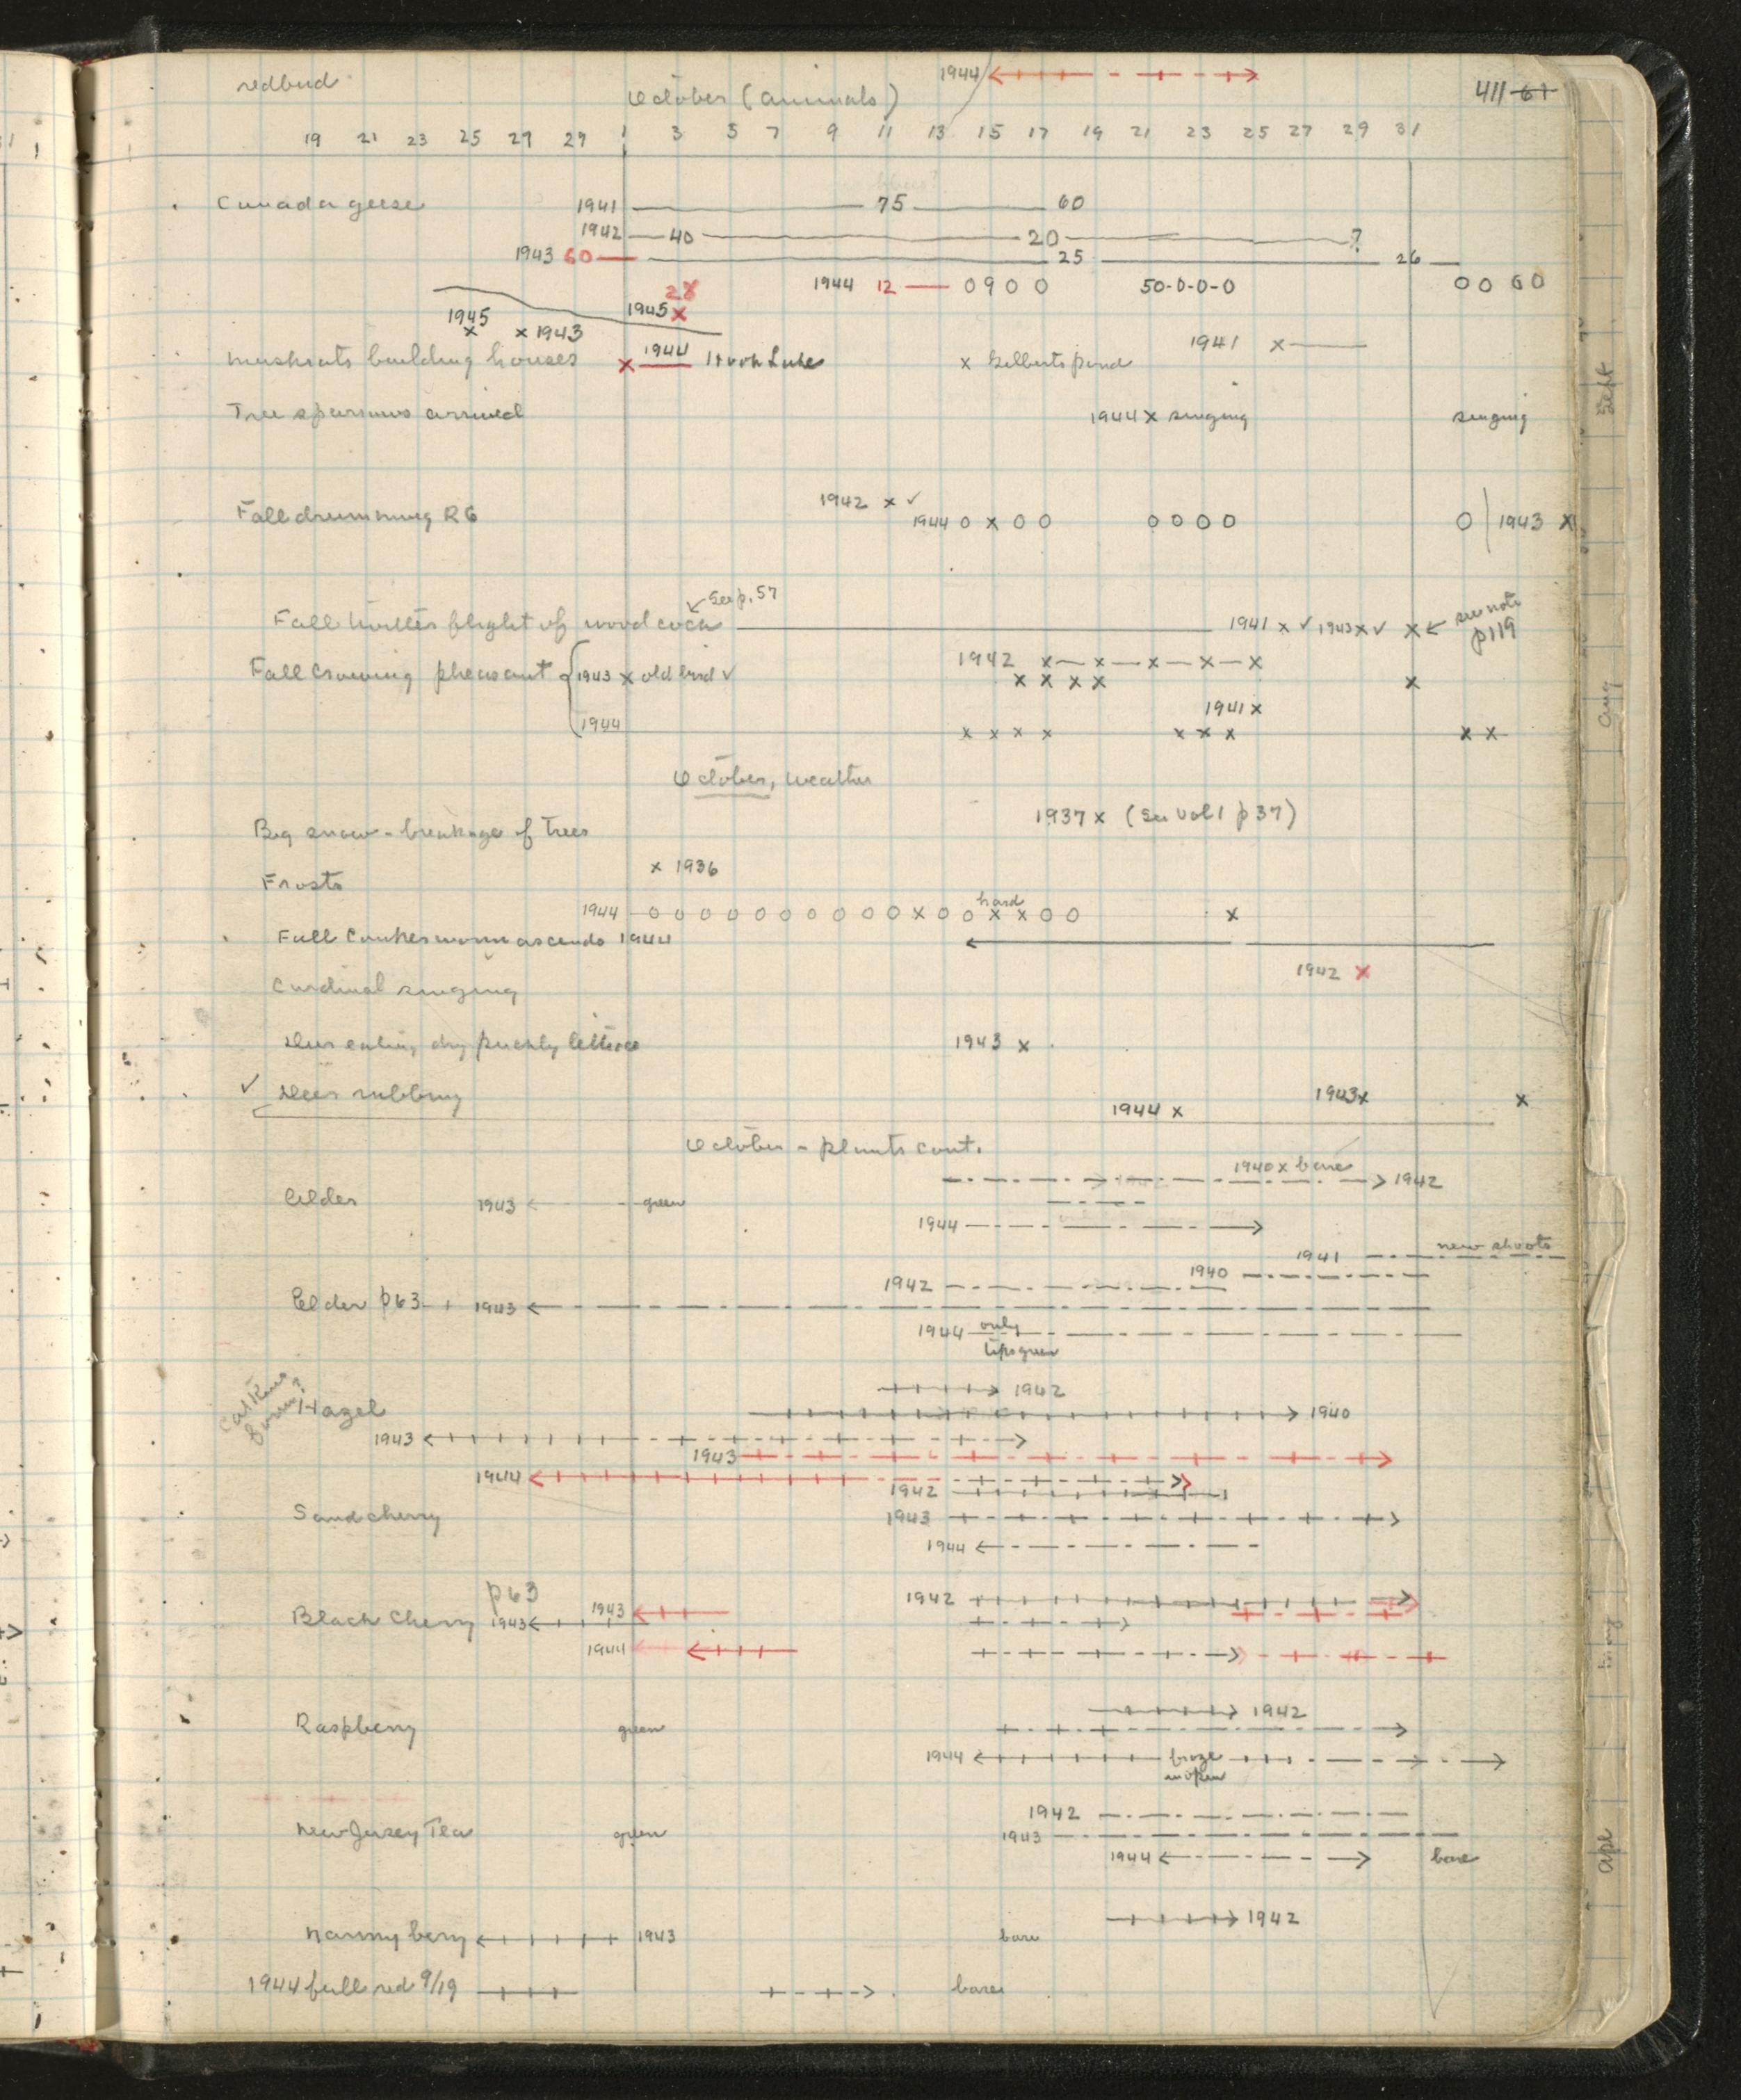 redbud 1944 411 61
October (animals)
19 21 23 25 27 29 1 3 5 7 9 11 13 15 17 19 21 23 25 27 29 31
Canada geese 1941 75 60
1942 40 20 7
1943 60 25 26
1944 12 0 9 0 0 50-0-0-0 0 0 60
28
1945 x 1943 1945 x
Muskrats building houses x 1944 x Gilberts pond 1941 x
Tree sparrows arrived 1944 x singing singing
1942 x ✓
Fall drumming RG 1944 0 x 0 0 0 0 0 0 0 1943 x
See p. 57
Fall twitter flight of woodcock 1941 x ✓ 1943 x ✓ x see note p119
1942 x x x x x
Fall crowing pheasant 1943 x old bird ✓ x x x x x
1941 x
1944 x x x x x x x x x
October, weather
Big snow - breakage of trees 1937 x (See Vol 1 p 37)
x 1936
Frosts
hard
1944 0 0 0 0 0 0 0 0 0 0 x 0 0 x x 0 0 x
Fall Cankerworm ascends 1944
1942 x
Cardinal singing
Deer eating dry prickly lettuce 1943 x
✓ Deer rubbing 1944 x 1943 x x
October - plants cont.
1940 x bare 1942
Alder 1943 green
1944
1941 new shoots
1942 1940
Elder p63 1943
1944 only tips green
1942
Catkins form? Hazel 1940
1943
1943
1944
1942
Sand cherry 1943
1944
p 63
Black Cherry 1943 1943 1942
1944
1942
Raspberry green
1944 froze
1942
New Jersey Tea green 1943
1944 bare
1942
Nanny berry 1943 bare
1944 full red 9/19 bare
Sept
Aug
May
Apl